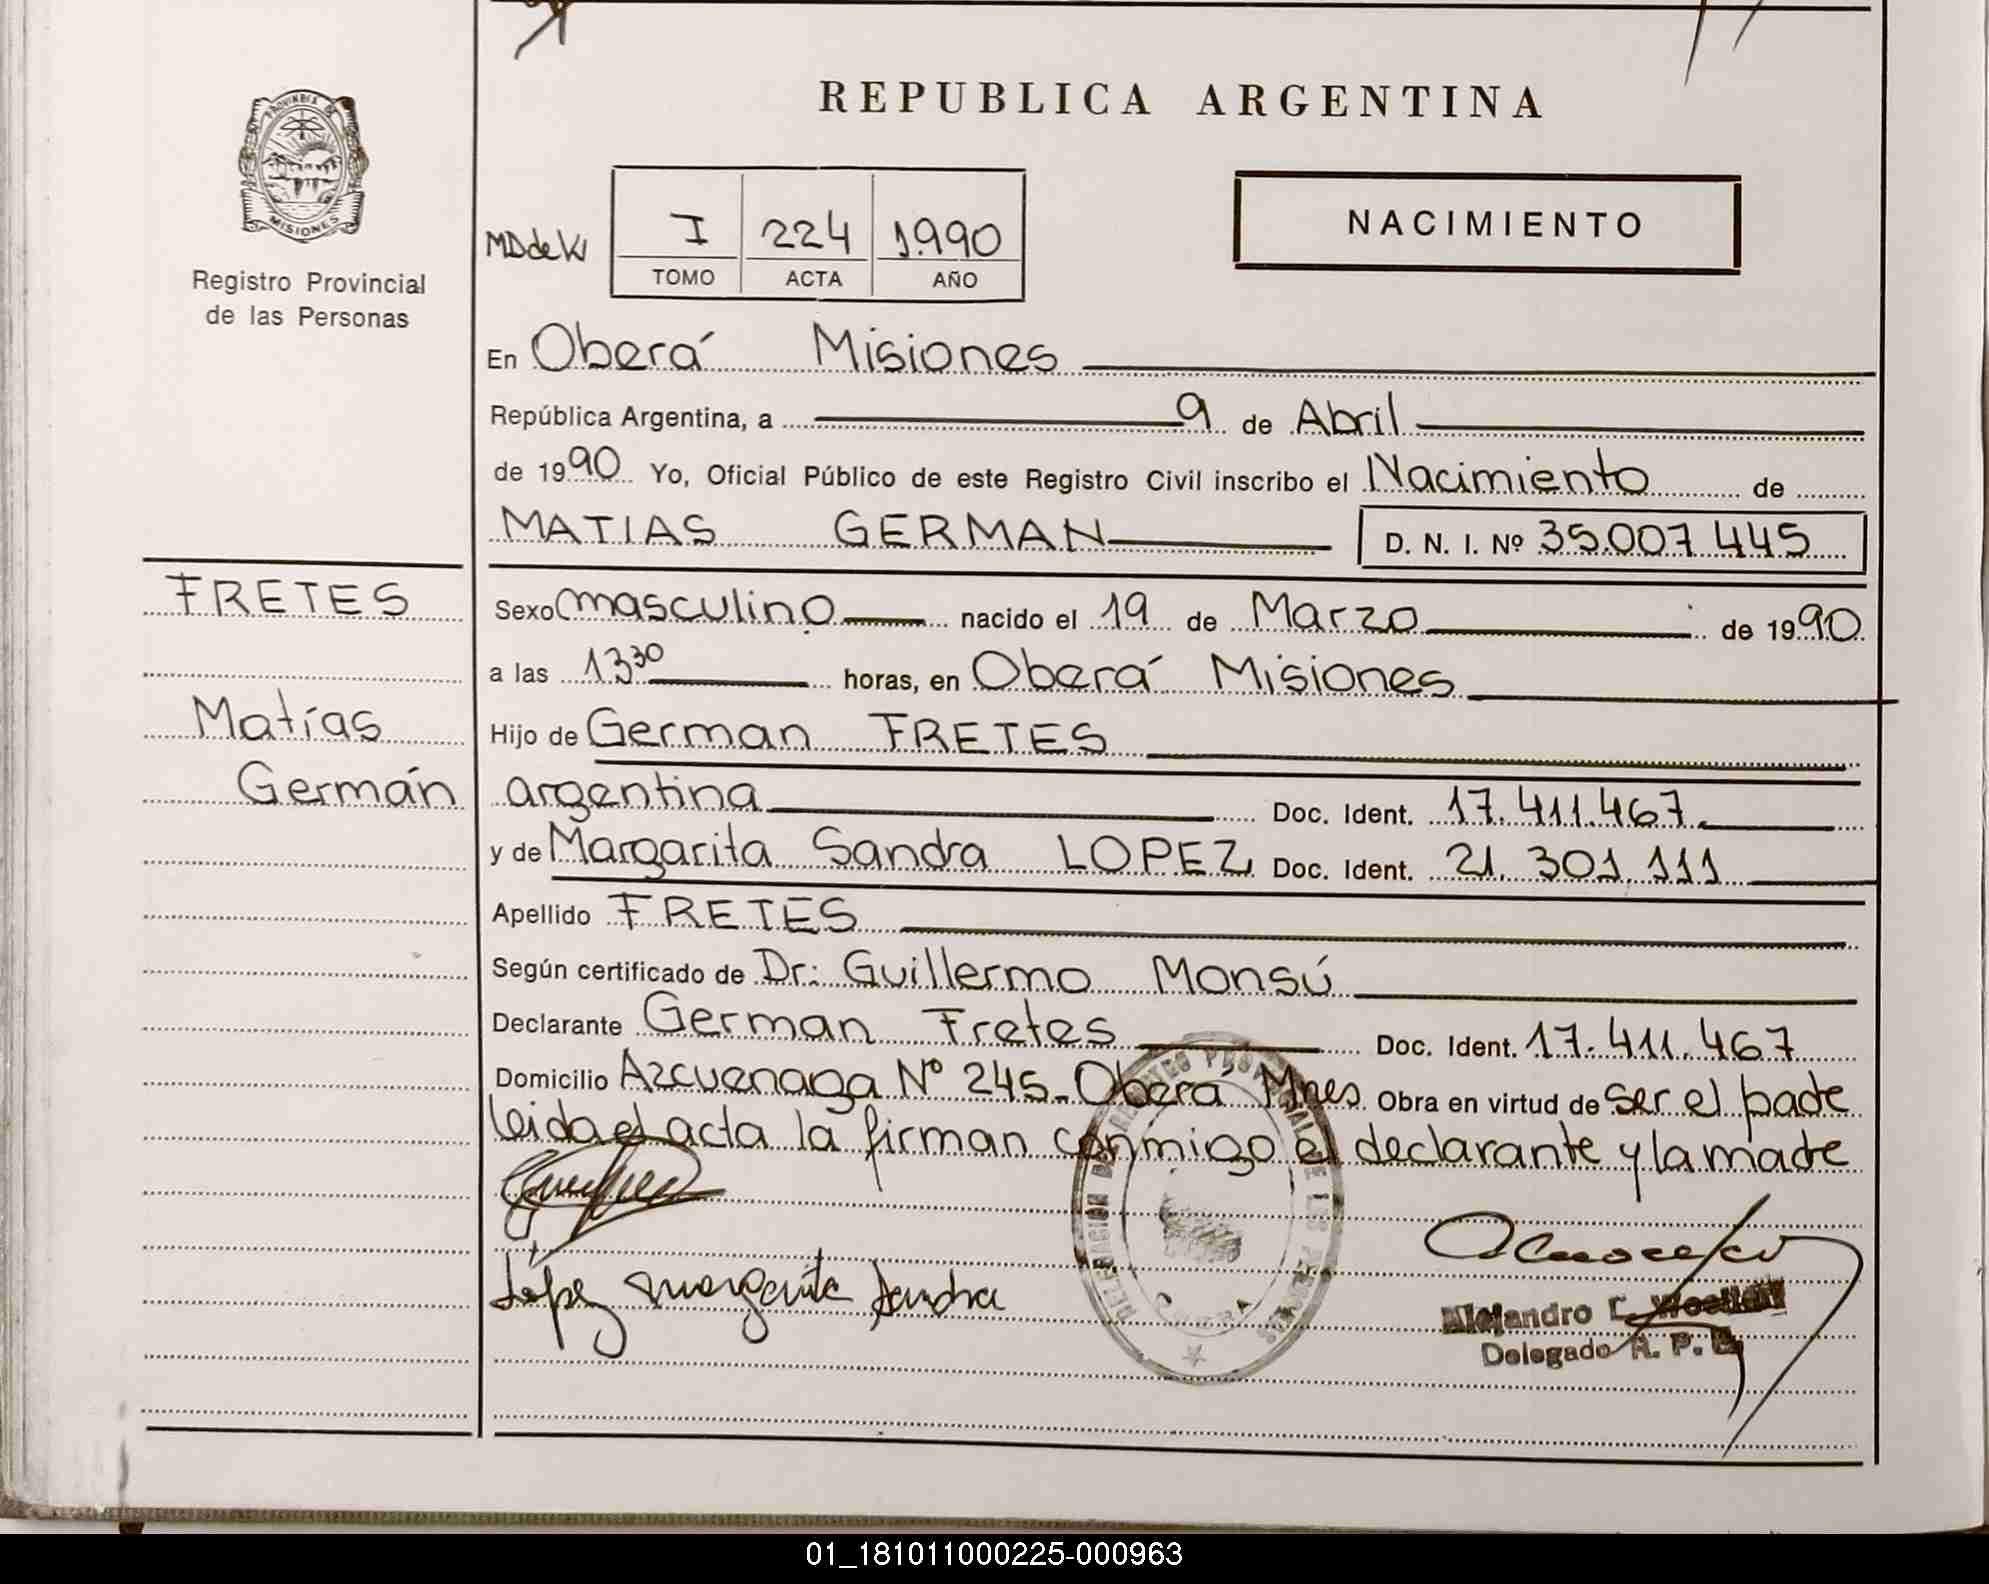 REPUBLICA ARGENTINA
PROVINCIA DE
MISIONES
Registro Provincial
de las Personas
MD de W
I 224 1990
TOMO ACTA AÑO
NACIMIENTO
En Oberá Misiones
República Argentina, a 9 de Abril
de 1990 Yo, Oficial Público de este Registro Civil inscribo el Nacimiento de
MATIAS GERMAN D. N. I. Nº 35.007 445
FRETES
Matías
Germán
Sexo masculino nacido el 19 de Marzo de 1990
a las 13 30 horas, en Oberá Misiones
Hijo de German FRETES
argentina Doc. Ident. 17.411.467
y de Margarita Sandra LOPEZ Doc. Ident. 21.301.111
Apellido FRETES
Según certificado de Dr: Guillermo Monsú
Declarante German Fretes Doc. Ident. 17.411.467
Domicilio Azcuenaga Nº 245- Oberá Mnes Obra en virtud de ser el padre
leida el acta la firman conmigo el declarante y la madre
López Margarita Sandra
Alejandro
Delegado R. P.
01_181011000225-000963